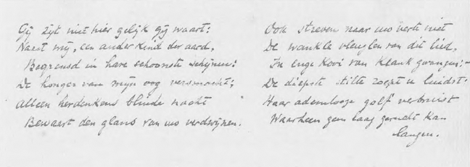 Gij zijt niet hier gelijk gij waart:
Naast mij, een ander kind der aard,
Begrensd in have schoonste schijnen:
De honger van mijn oog versmacht;
Alleen herdenkens blinde nacht
Bewaart den glans van uw verdwijnen.
Ook streven naar uw verte niet
De wankle vleuglen van dit lied,
In enge kooi van klank gevangen:
De diepste stilte zoekt u luidst:
Haar ademlooze golf verbruist
Waarheen geen laag gerucht kan
langen.